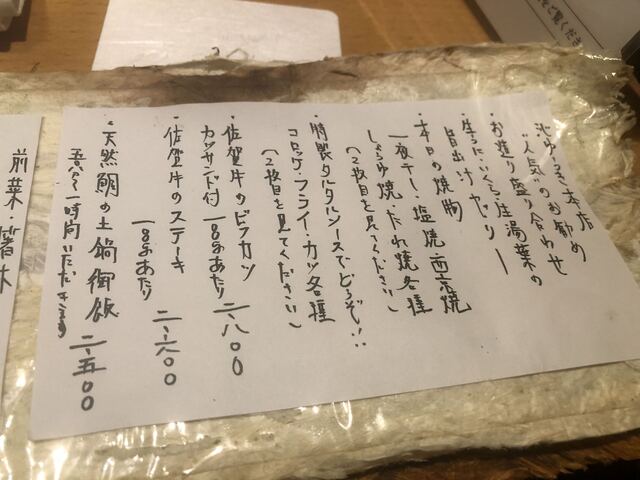 本店
"人気"のお勧め
・お造り盛り合わせ
・生うに・いくら・生湯葉の
旨出汁ゼリー
・本日の焼物
一夜干し・塩焼・西京焼
しょうゆ焼・たれ焼各種
(2枚目を見てください)
・特製タルタルソースでどうぞ!!
コロッケ・フライ・カツ各種
(2枚目を見てください)
・佐賀牛のビフカツ
カツサンド付 180gあたり 二、八〇〇
・佐賀牛のステーキ
180gあたり 二、六〇〇
・天然鯛の土鍋御飯 二、五〇〇
一時間いただきます
前菜・箸休
をご覧くださ